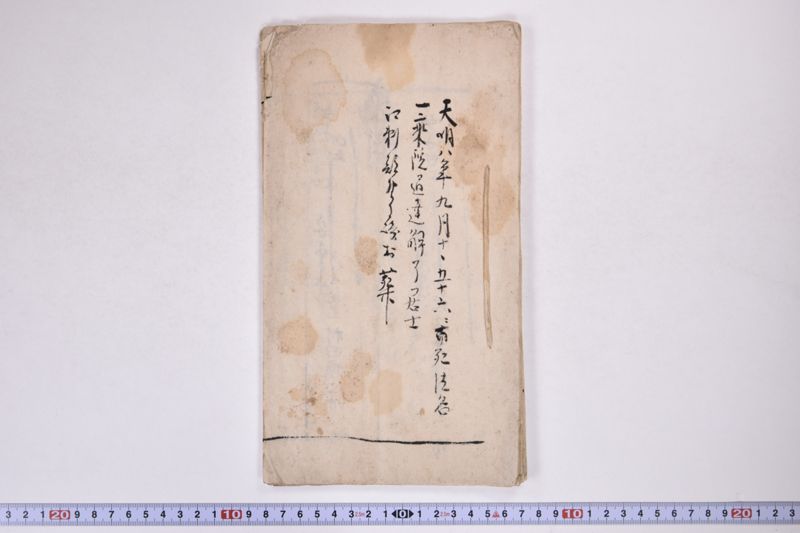 天明八年九月十、五十六ニ而死法名
一乗院道達解了居士
江刺郡
葬
3 2 1 20 9 8 7 6 5 4 3 2 1 10 9 8 7 6 5 4 3 2 1 0 1 2 3 4 5 6 7 8 9 10 1 2 3 4 5 6 7 8 9 20 1 2 3